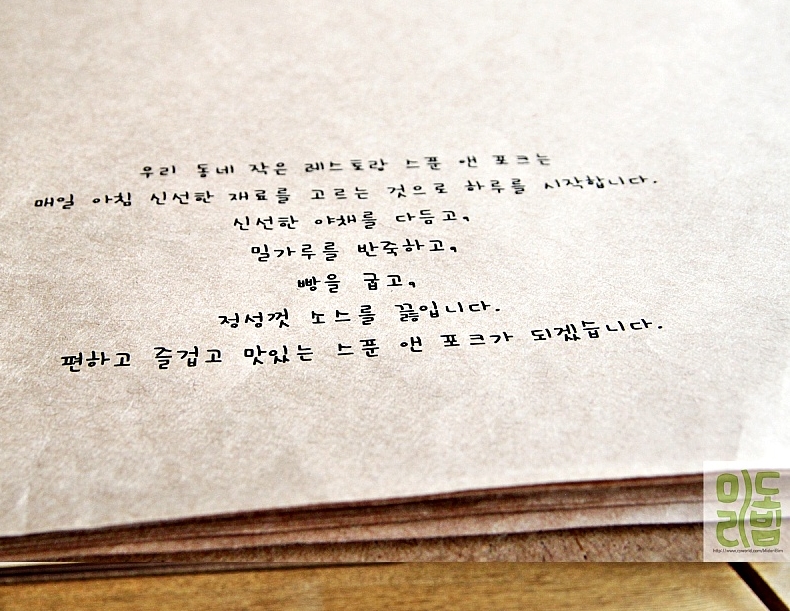 우리 동네 작은 레스토랑 스푼 앤 포크는
매일 아침 신선한 재료를 고르는 것으로 하루를 시작합니다.
신선한 야채를 다듬고,
밀가루를 반죽하고,
빵을 굽고,
정성껏 소스를 끓입니다.
편하고 즐겁고 맛있는 스푼 앤 포크가 되겠습니다.
미도
리빔